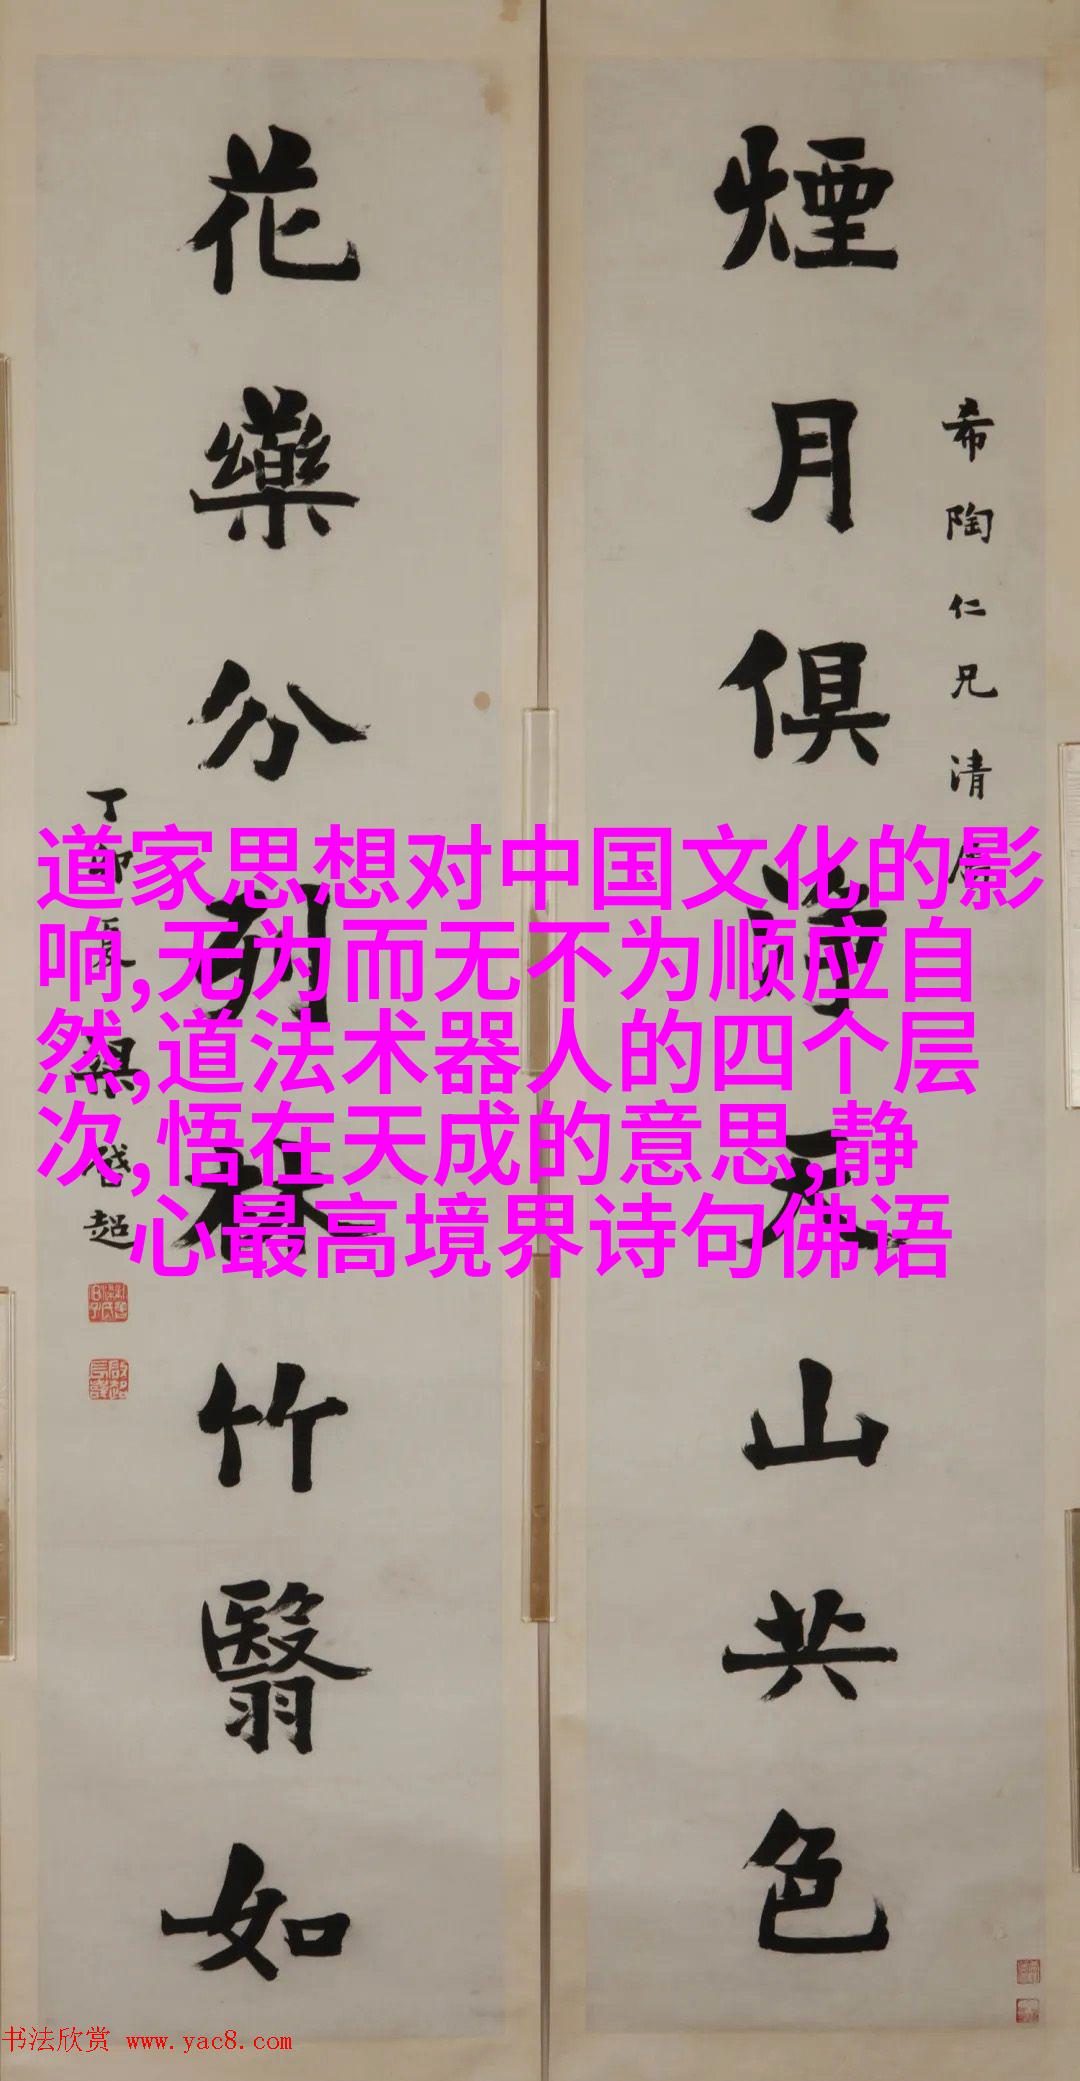 煙月俱淨天山共色
希陶仁兄清
花藥分列林竹翳如
丁卯
梁啓超
道家思想对中国文化的影
响,无为而无不为顺应自
然,道法术器人的四个层
次,悟在天成的意思,静
心最高境界诗句佛语
书法欣赏 www.yac8.com